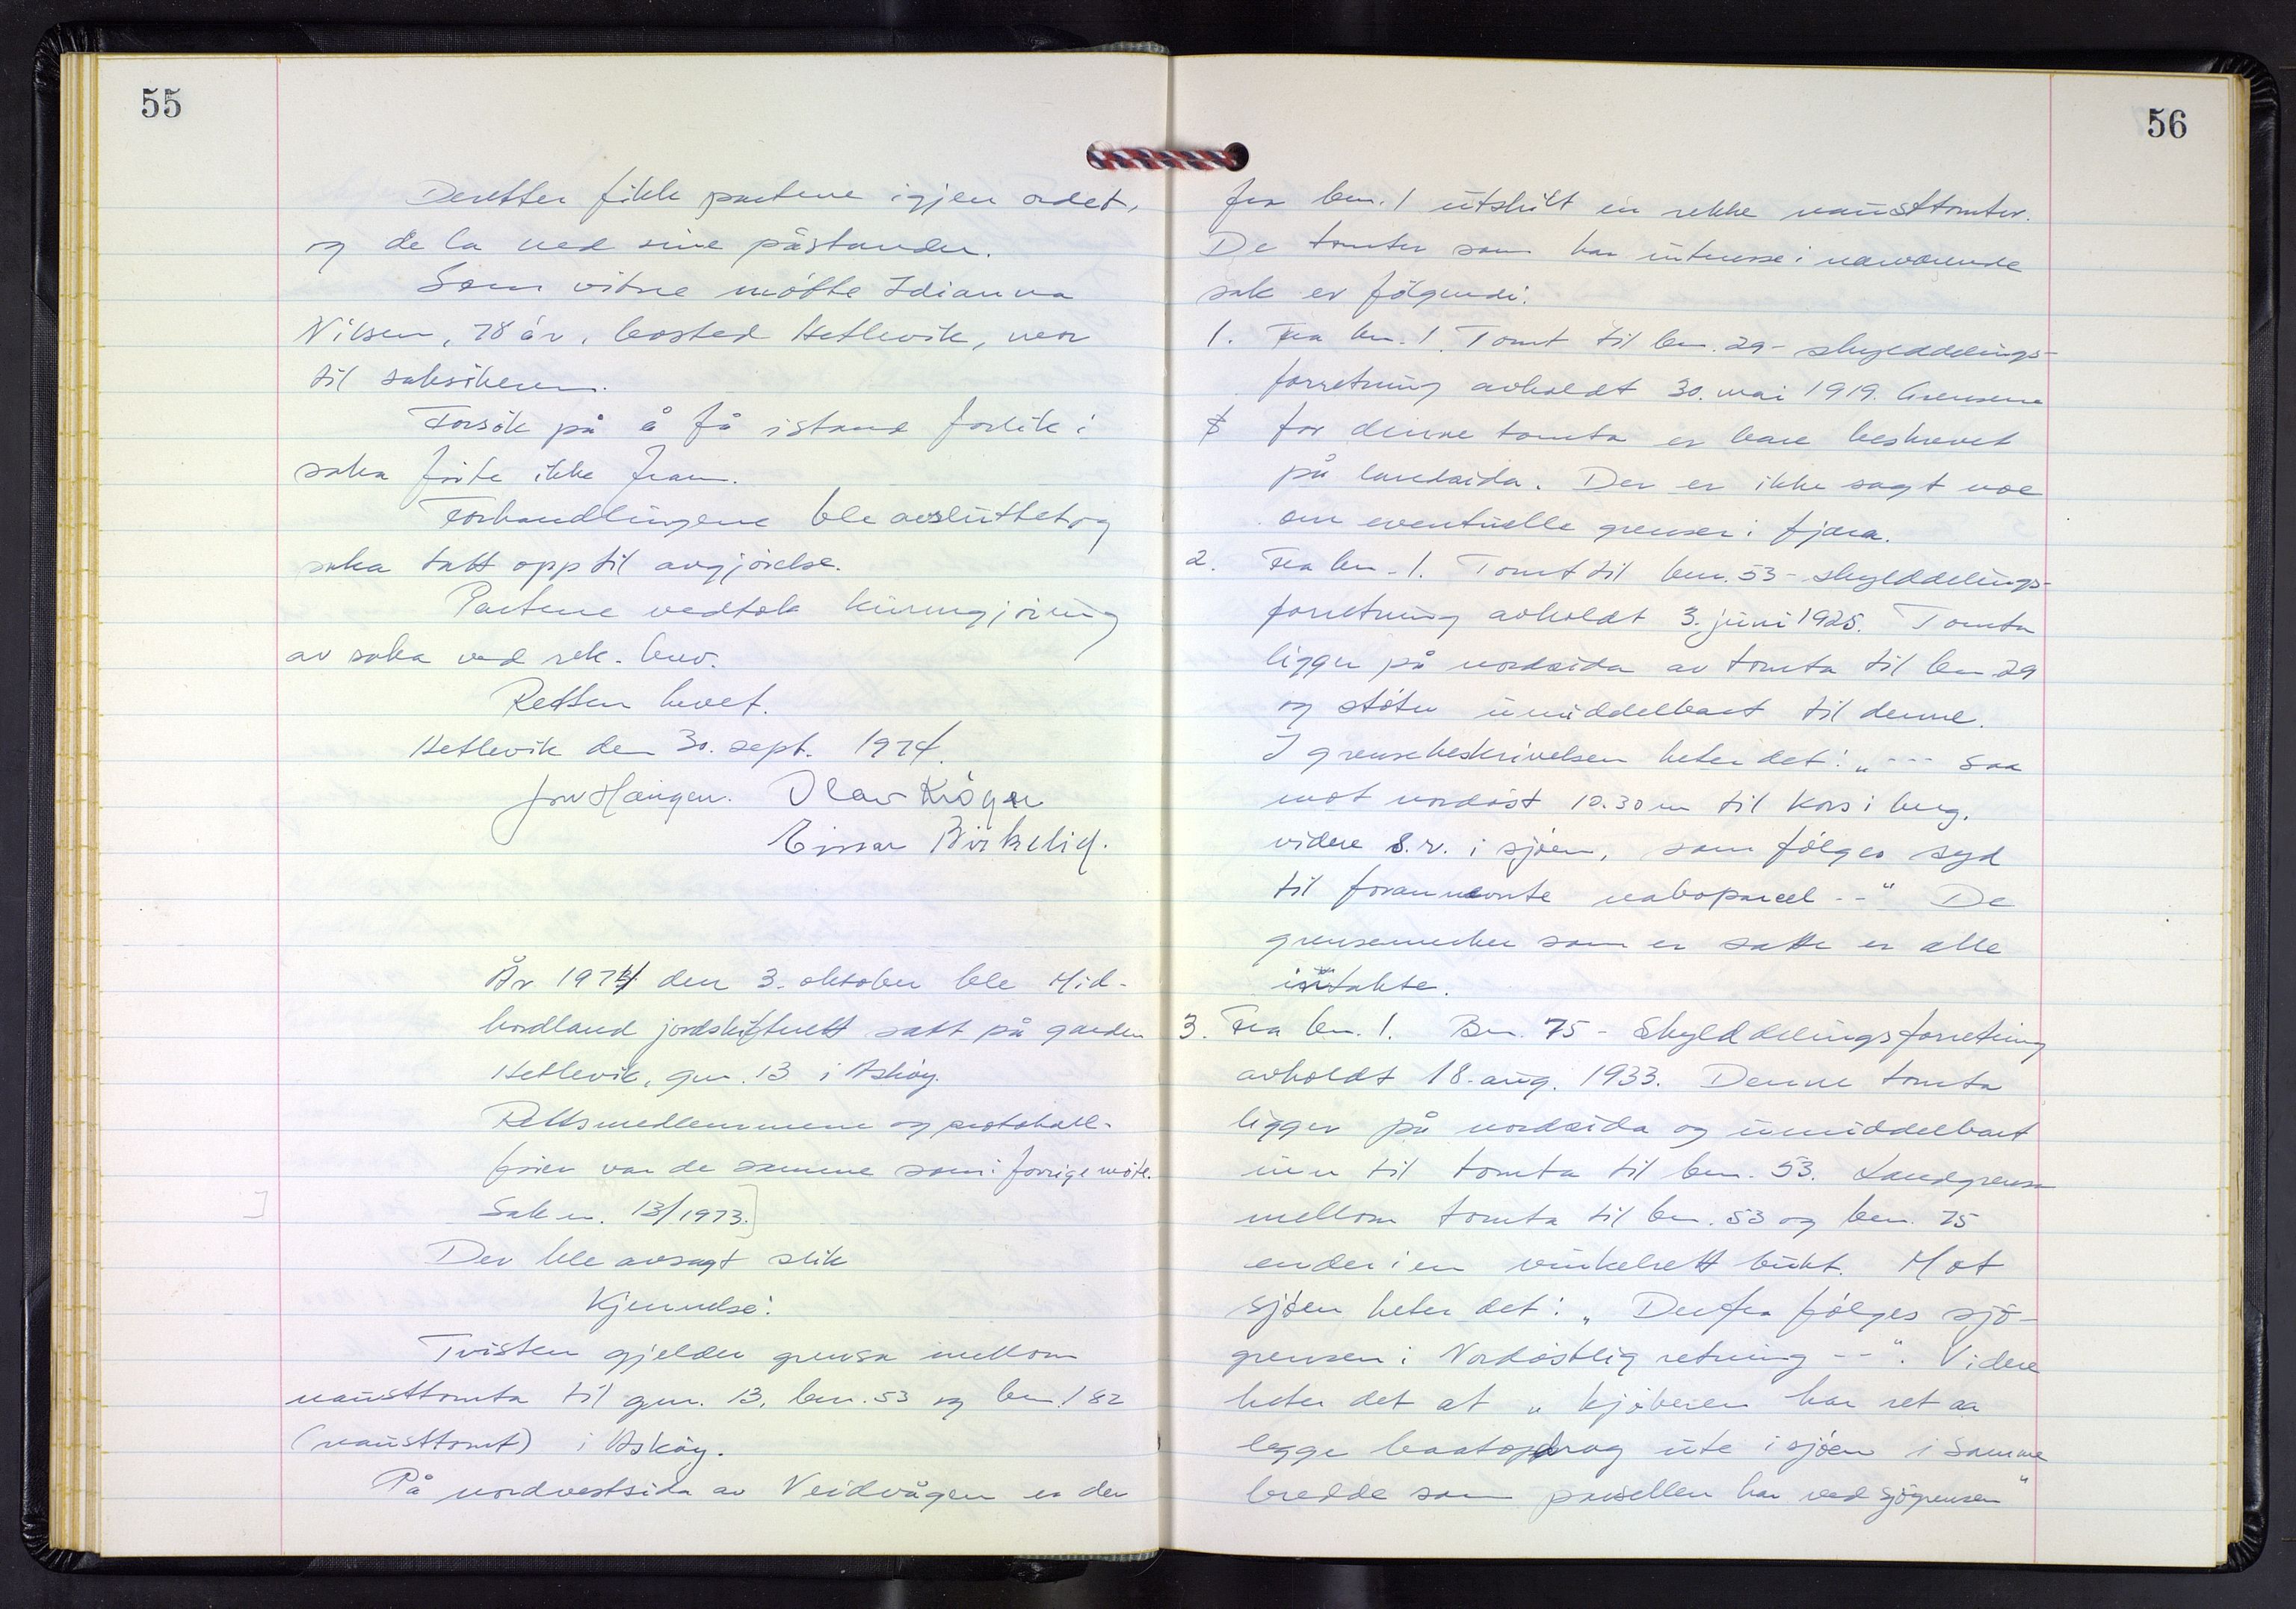 55
Deretter fikk partene igjen ordet,
og de la ned sine påstander.
Som vitne møtte Idianna
Nilsen, 78 år, bosted Hetlevik, vor
til saksøkeren.
Forsøk på å få istand forlik i
saka førte ikke fram.
Forhandlingene ble avsluttet og
saka tatt opp til avgjørelse.
Partene vedtok kunngjøring
av saka ved rek. brev.
Retten hevet.
Hetlevik den 30. sept. 1974.
Jon Haugen. Olav Kröger
Einar Birkelid.
År 1974 den 3. oktober ble Mid-
hordland jordskifterett satt på garden
Hetlevik, gnr. 13 i Askøy.
Rettsmedlemmene og protokoll-
fører var de samme som i forrige møte.
Sak nr. 13/1973.
Der ble avsagt slik
Kjennelse:
Tvisten gjelder grensa mellom
nausttomta til gnr. 13, bnr. 53 og bnr. 182
(nausttomt) i Askøy.
På nordvestsida av Veidvågen er der
56
fra bnr. 1 utskilt en rekke nausttomter.
De tomter som har interesse i nærværende
sak er følgende:
1. Fra bnr. 1. Tomt til bnr. 29 - skylddelings-
forretning avholdt 30. mai 1919. Grensene
for denne tomta er bare beskrevet
på landsida. Der er ikke sagt noe
om eventuelle grenser i fjæra.
2. Fra bnr. 1. Tomt til bnr. 53 - skylddelings-
forretning avholdt 3. juni 1925. Tomta
ligger på nordsida av tomta til bnr. 29
og støter umiddelbart til denne.
I grensebeskrivelsen heter det: „--- saa
mot nordøst 10.30 m til kors i berg,
videre s.r. i sjøen, som følges syd
til forannevnte naboparcel --" De
grensemerker som er satte er alle
intakte.
3. Fra bnr. 1. Bnr. 75 - Skylddelingsforretning
avholdt 18. aug. 1933. Denne tomta
ligger på nordsida og umiddelbart
inn til tomta til bnr. 53. Landgrensa
mellom tomta til bnr. 53 og bnr. 75
ender i en vinkelrett bukt. Mot
sjøen heter det: „Derfra følges sjø-
grensen i Nordøstlig retning --". Videre
heter det at „kjøberen har ret aa
legge baatopdrag ute i sjøen i samme
bredde som parsellen har ved sjøgrensen"